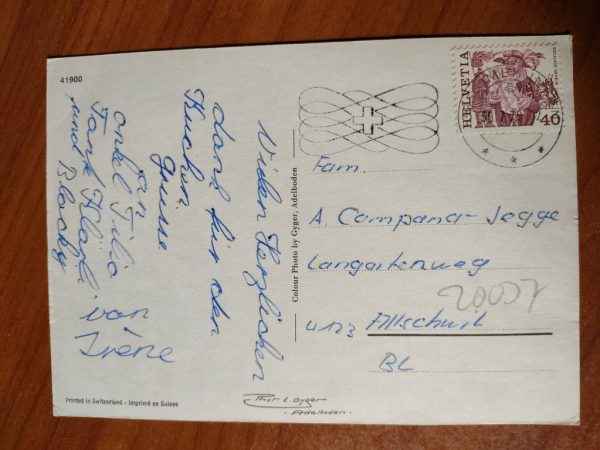 41900
Vielen Herzlichen
dank für den
Kuchen.
Grüsse
an
onkel Tilio
Tante Kläli
und Blacky
von
Irene
Colour Photo by Gyger, Adelboden
Printed in Switzerland - Imprimé en Suisse
Photo E. Gyger
- Adelboden -
HELVETIA
40
Fam.
A. Campana-Jegge
Langartenweg
4123 Allschwil
BL
20097